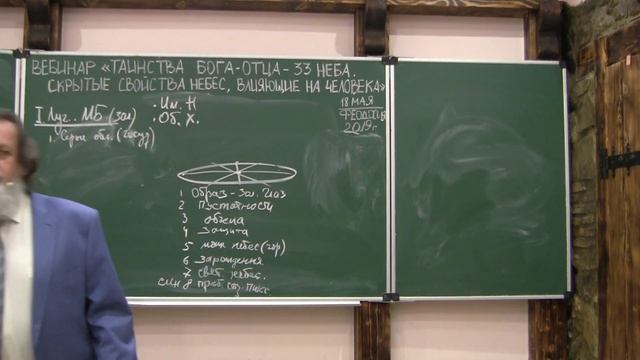 ВЕБИНАР «ТАИНСТВА БОГА-ОТЦА - 33 НЕБА.
СКРЫТЫЕ СВОЙСТВА НЕБЕС, ВЛИЯЮЩИЕ НА ЧЕЛОВЕКА»
18 МАЯ
ФЕОДОСИЯ
2019г.
I Луг. МБ (зол)
• Им. Н
• Об. Х.
1. Серые обл. (госуд)
1 Образ - Зол. Глаз
2 Пустотности
3 объема
4 Защита
5 мощи небес (гор)
6 Зарождения
7 свет небес.
8